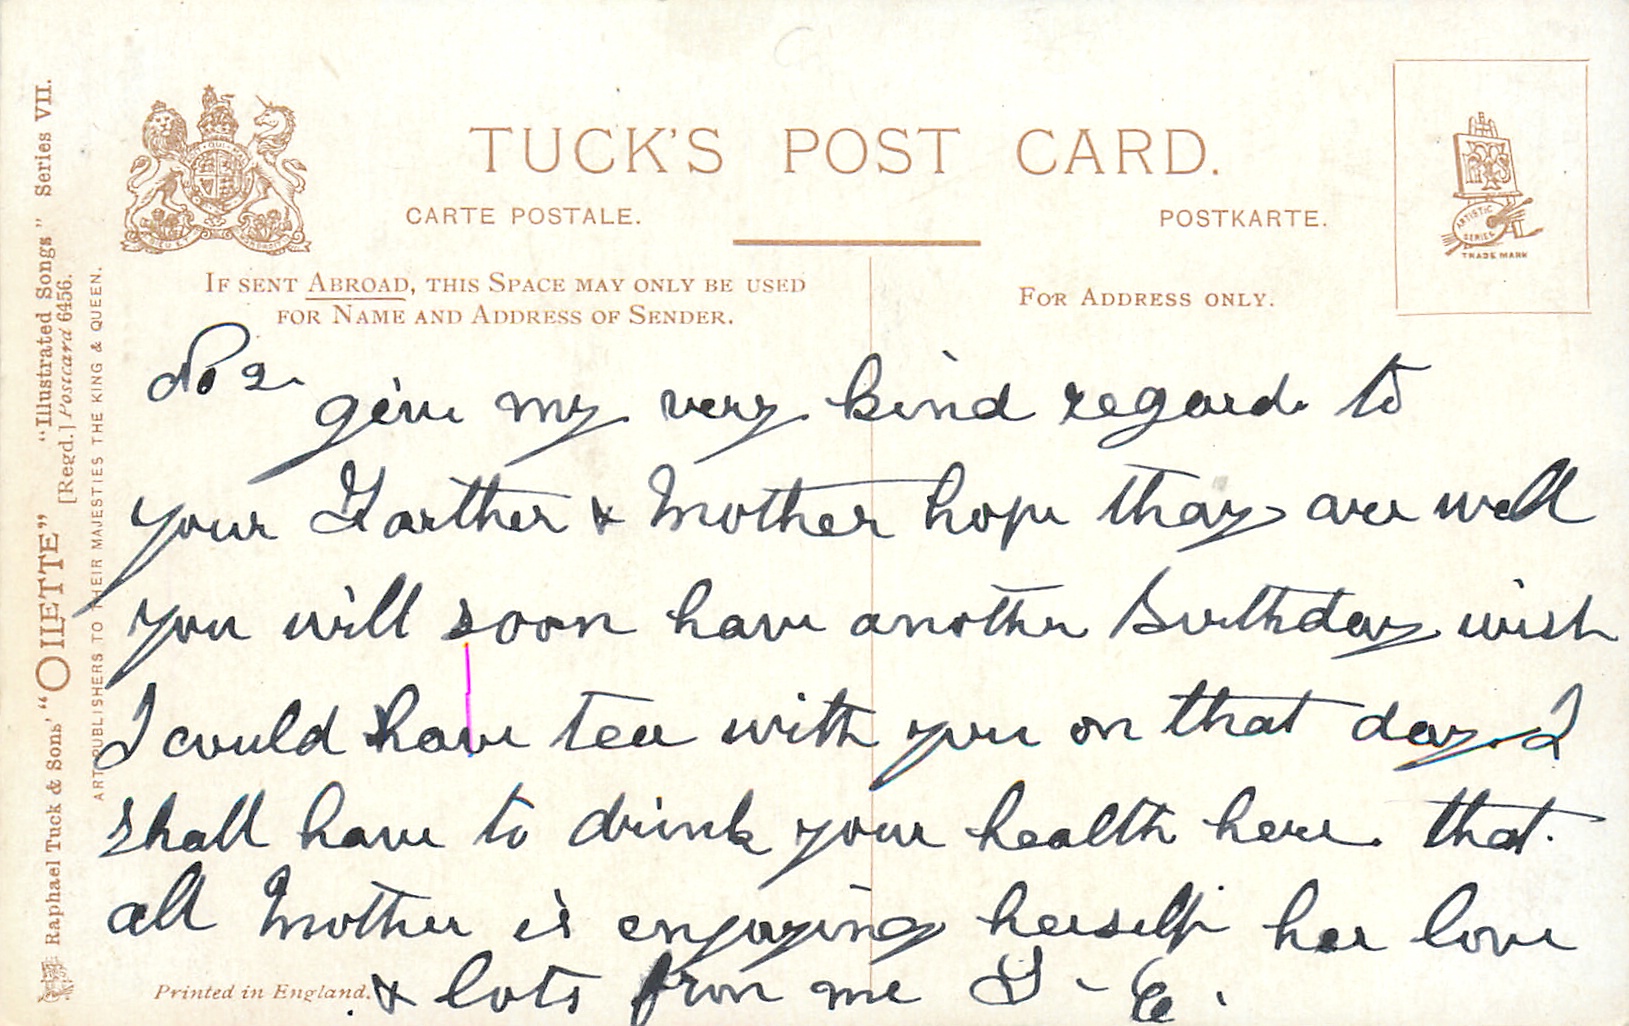 TUCK'S POST CARD.
CARTE POSTALE.
POSTKARTE.
IF SENT ABROAD, THIS SPACE MAY ONLY BE USED
FOR NAME AND ADDRESS OF SENDER.
FOR ADDRESS ONLY.
ARTISTIC
SERIES
TRADE MARK
Raphael Tuck & Sons' "OILETTE" "Illustrated Songs" Series VII.
[Regd.] Postcard 6456.
ART PUBLISHERS TO THEIR MAJESTIES THE KING & QUEEN.
No 2.
give my very kind regards to
your Farther & Mother hope thay are well
you will soon have another Birthday wish
I could have tea with you on that day. I
shall have to drink your health here. that.
all Mother is enjoying herself her love
& lots from me G - E.
Printed in England.